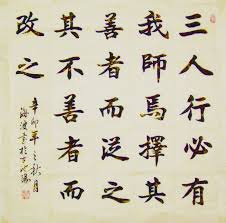 三人行必有
我師焉擇其
善者而從之
其不善者而
改之
辛卯年之秋月
海波書於